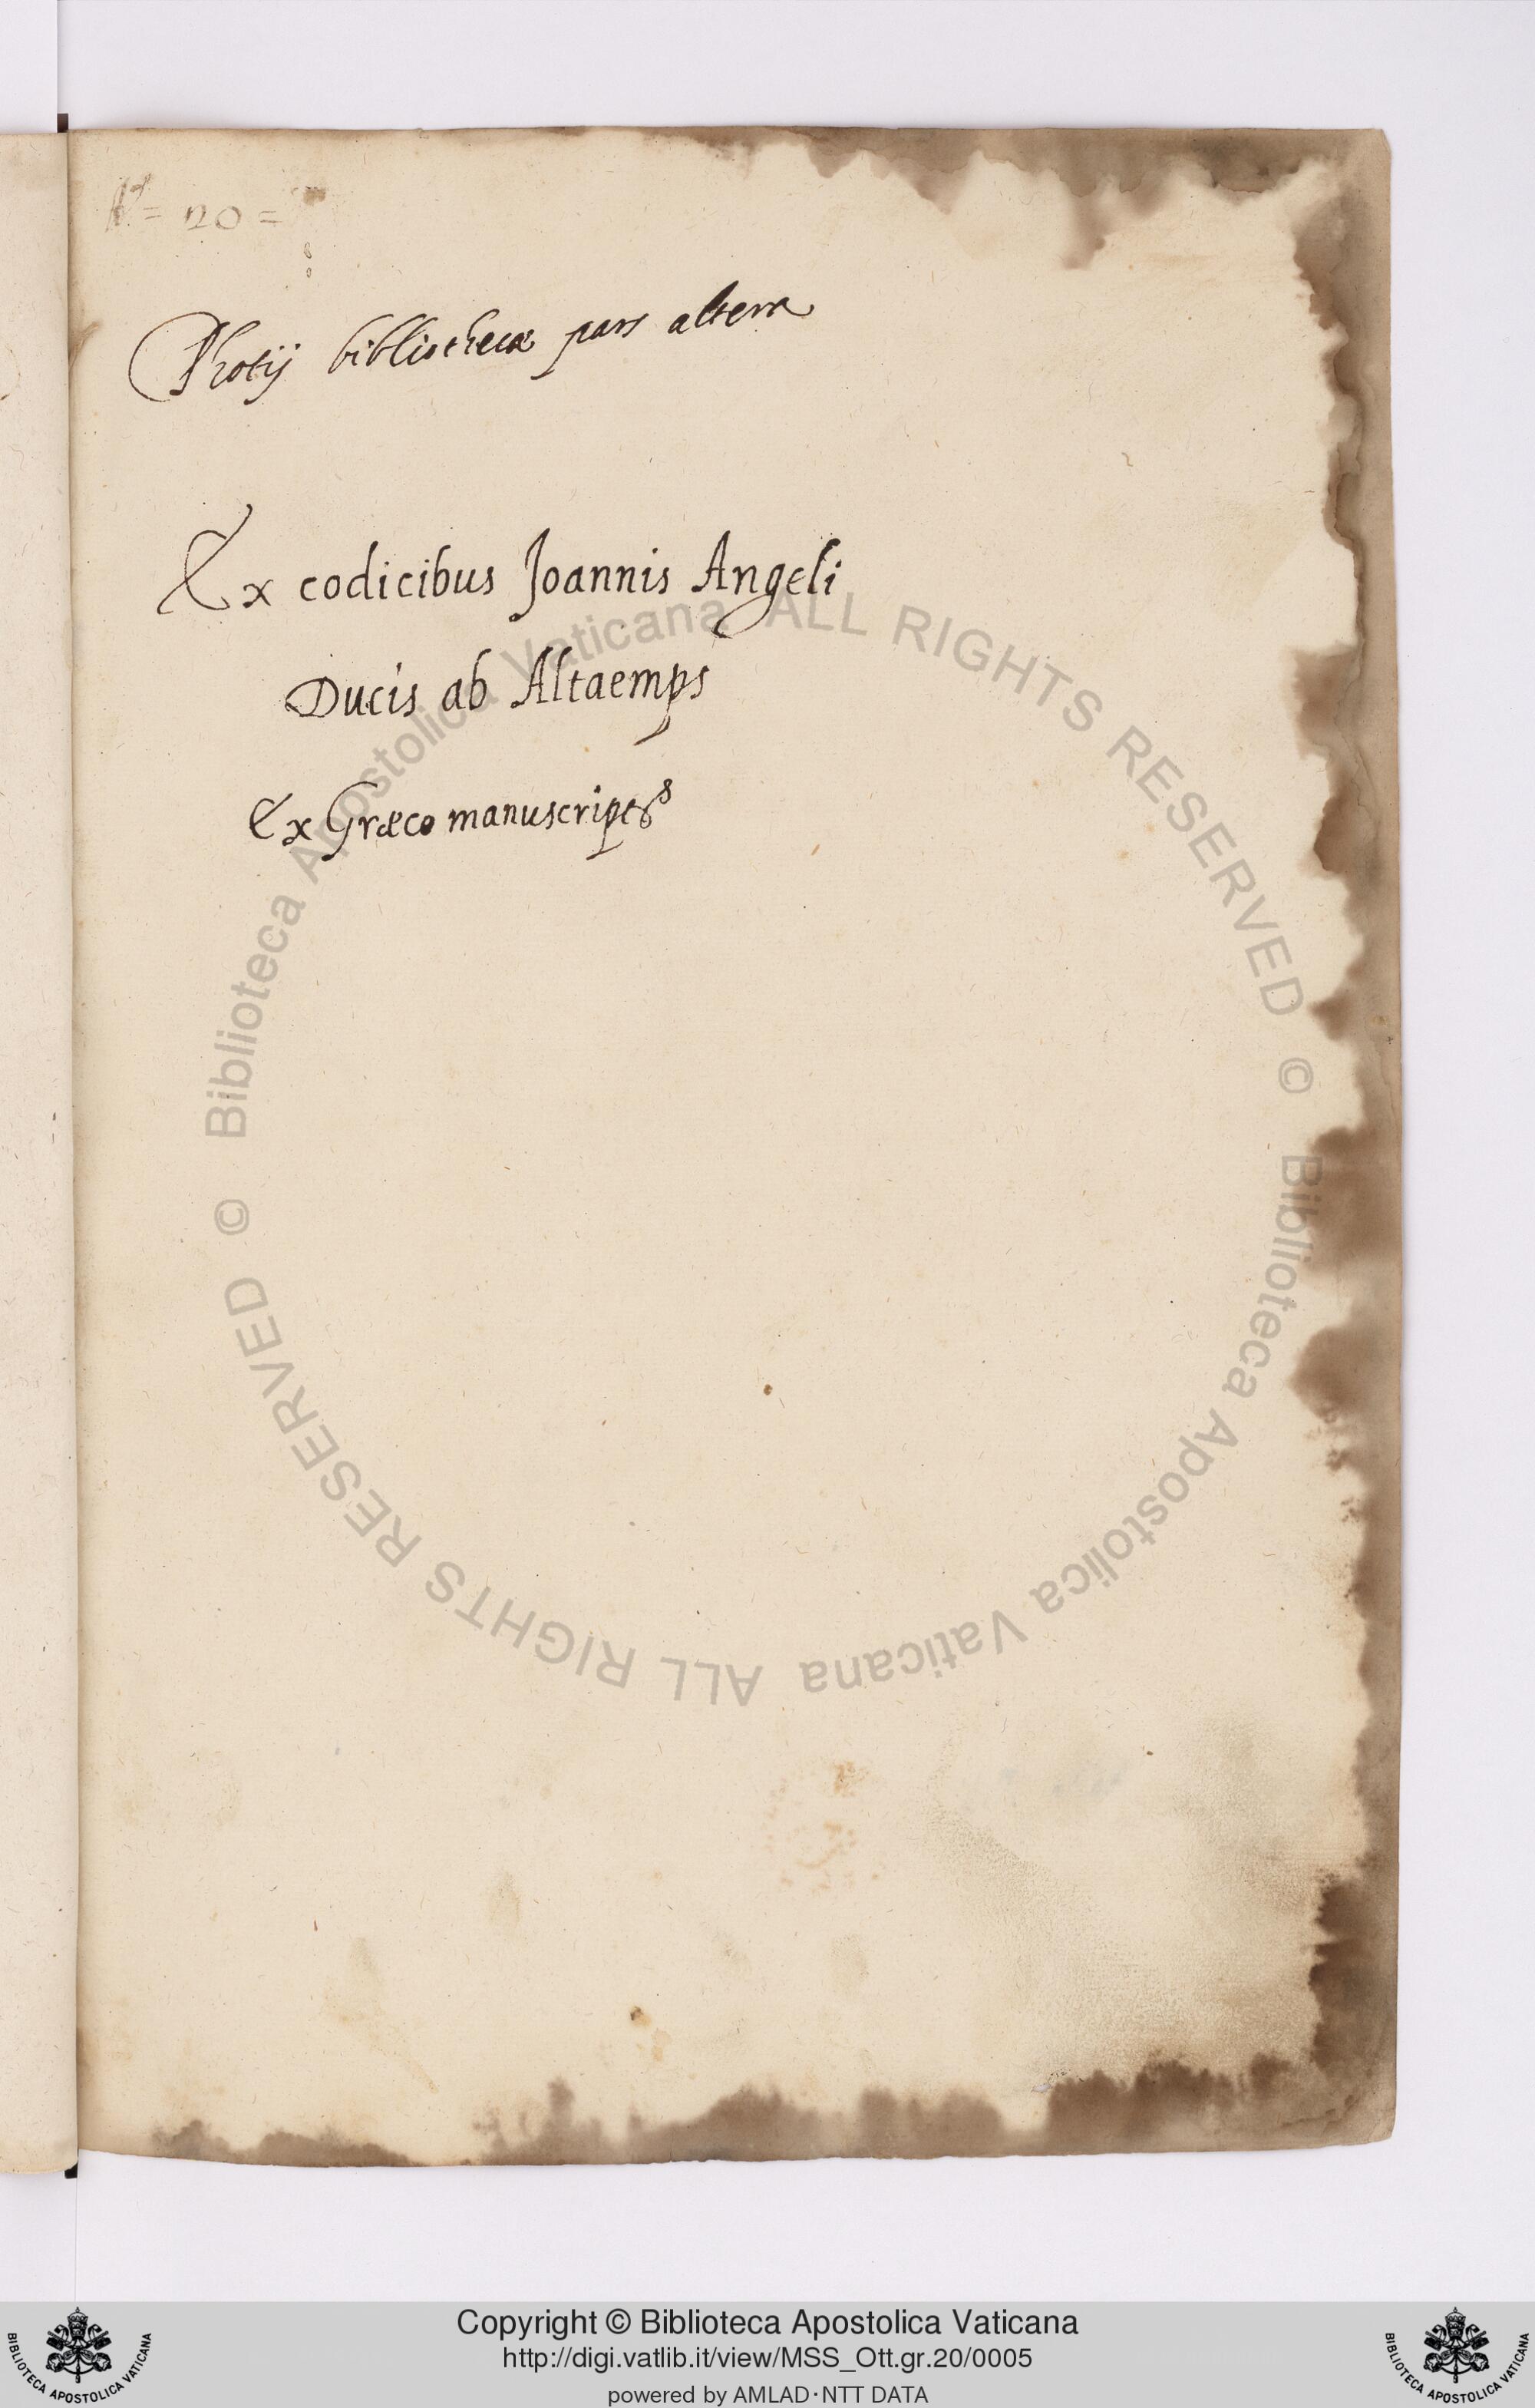 = 20 =
Photij bibliothecæ pars altera
Ex codicibus Joannis Angeli
Ducis ab Altaemps
Ex Græco manuscript
© Biblioteca Apostolica Vaticana ALL RIGHTS RESERVED
© Biblioteca Apostolica Vaticana ALL RIGHTS RESERVED
Copyright © Biblioteca Apostolica Vaticana
http://digi.vatlib.it/view/MSS_Ott.gr.20/0005
powered by AMLAD·NTT DATA
BIBLIOTECA APOSTOLICA VATICANA
BIBLIOTECA APOSTOLICA VATICANA